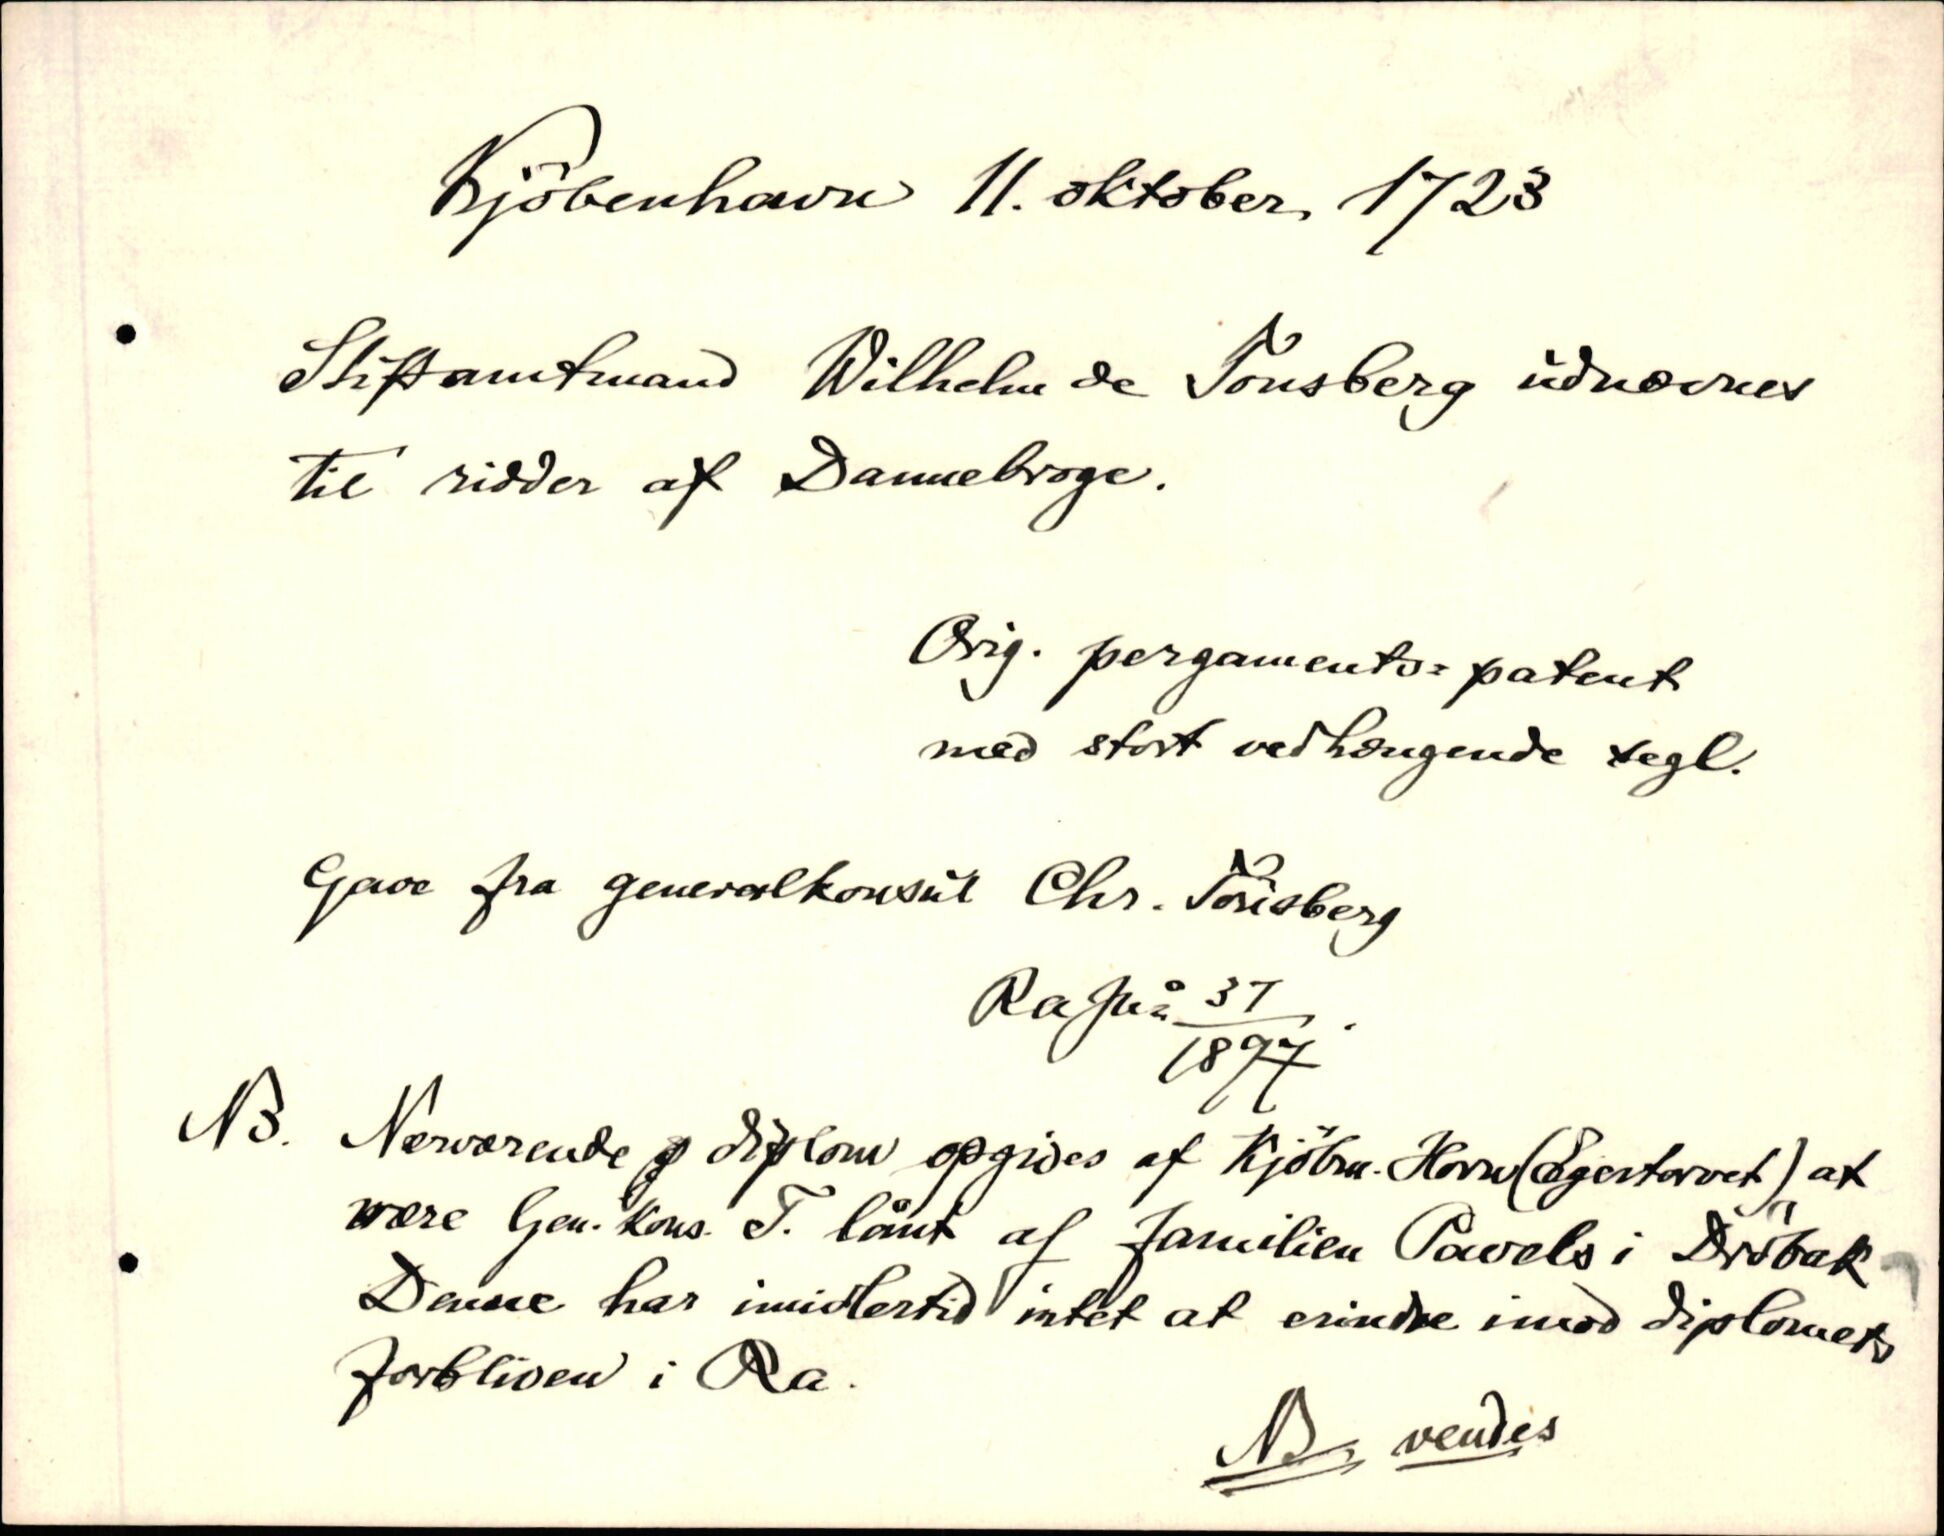 Kjöbenhavn 11. oktober 1723
Stiftamtmand Wilhelm de Tönsberg udnævnes
til ridder af Dannebroge.
Orig. pergaments-patent
med stort vedhængende segl.
Gave fra generalkonsul Chr. Tönsberg
Ra 37
1897.
NB. Nærværende diplom opgives af Kjöbm. Horn (Egertorvet) at
være Gen. kons. T. lånt af familien Pavels i Dröbak
Denne har imidlertid intet at erindre imod diplomets
forbliven i Ra.
NB vendes